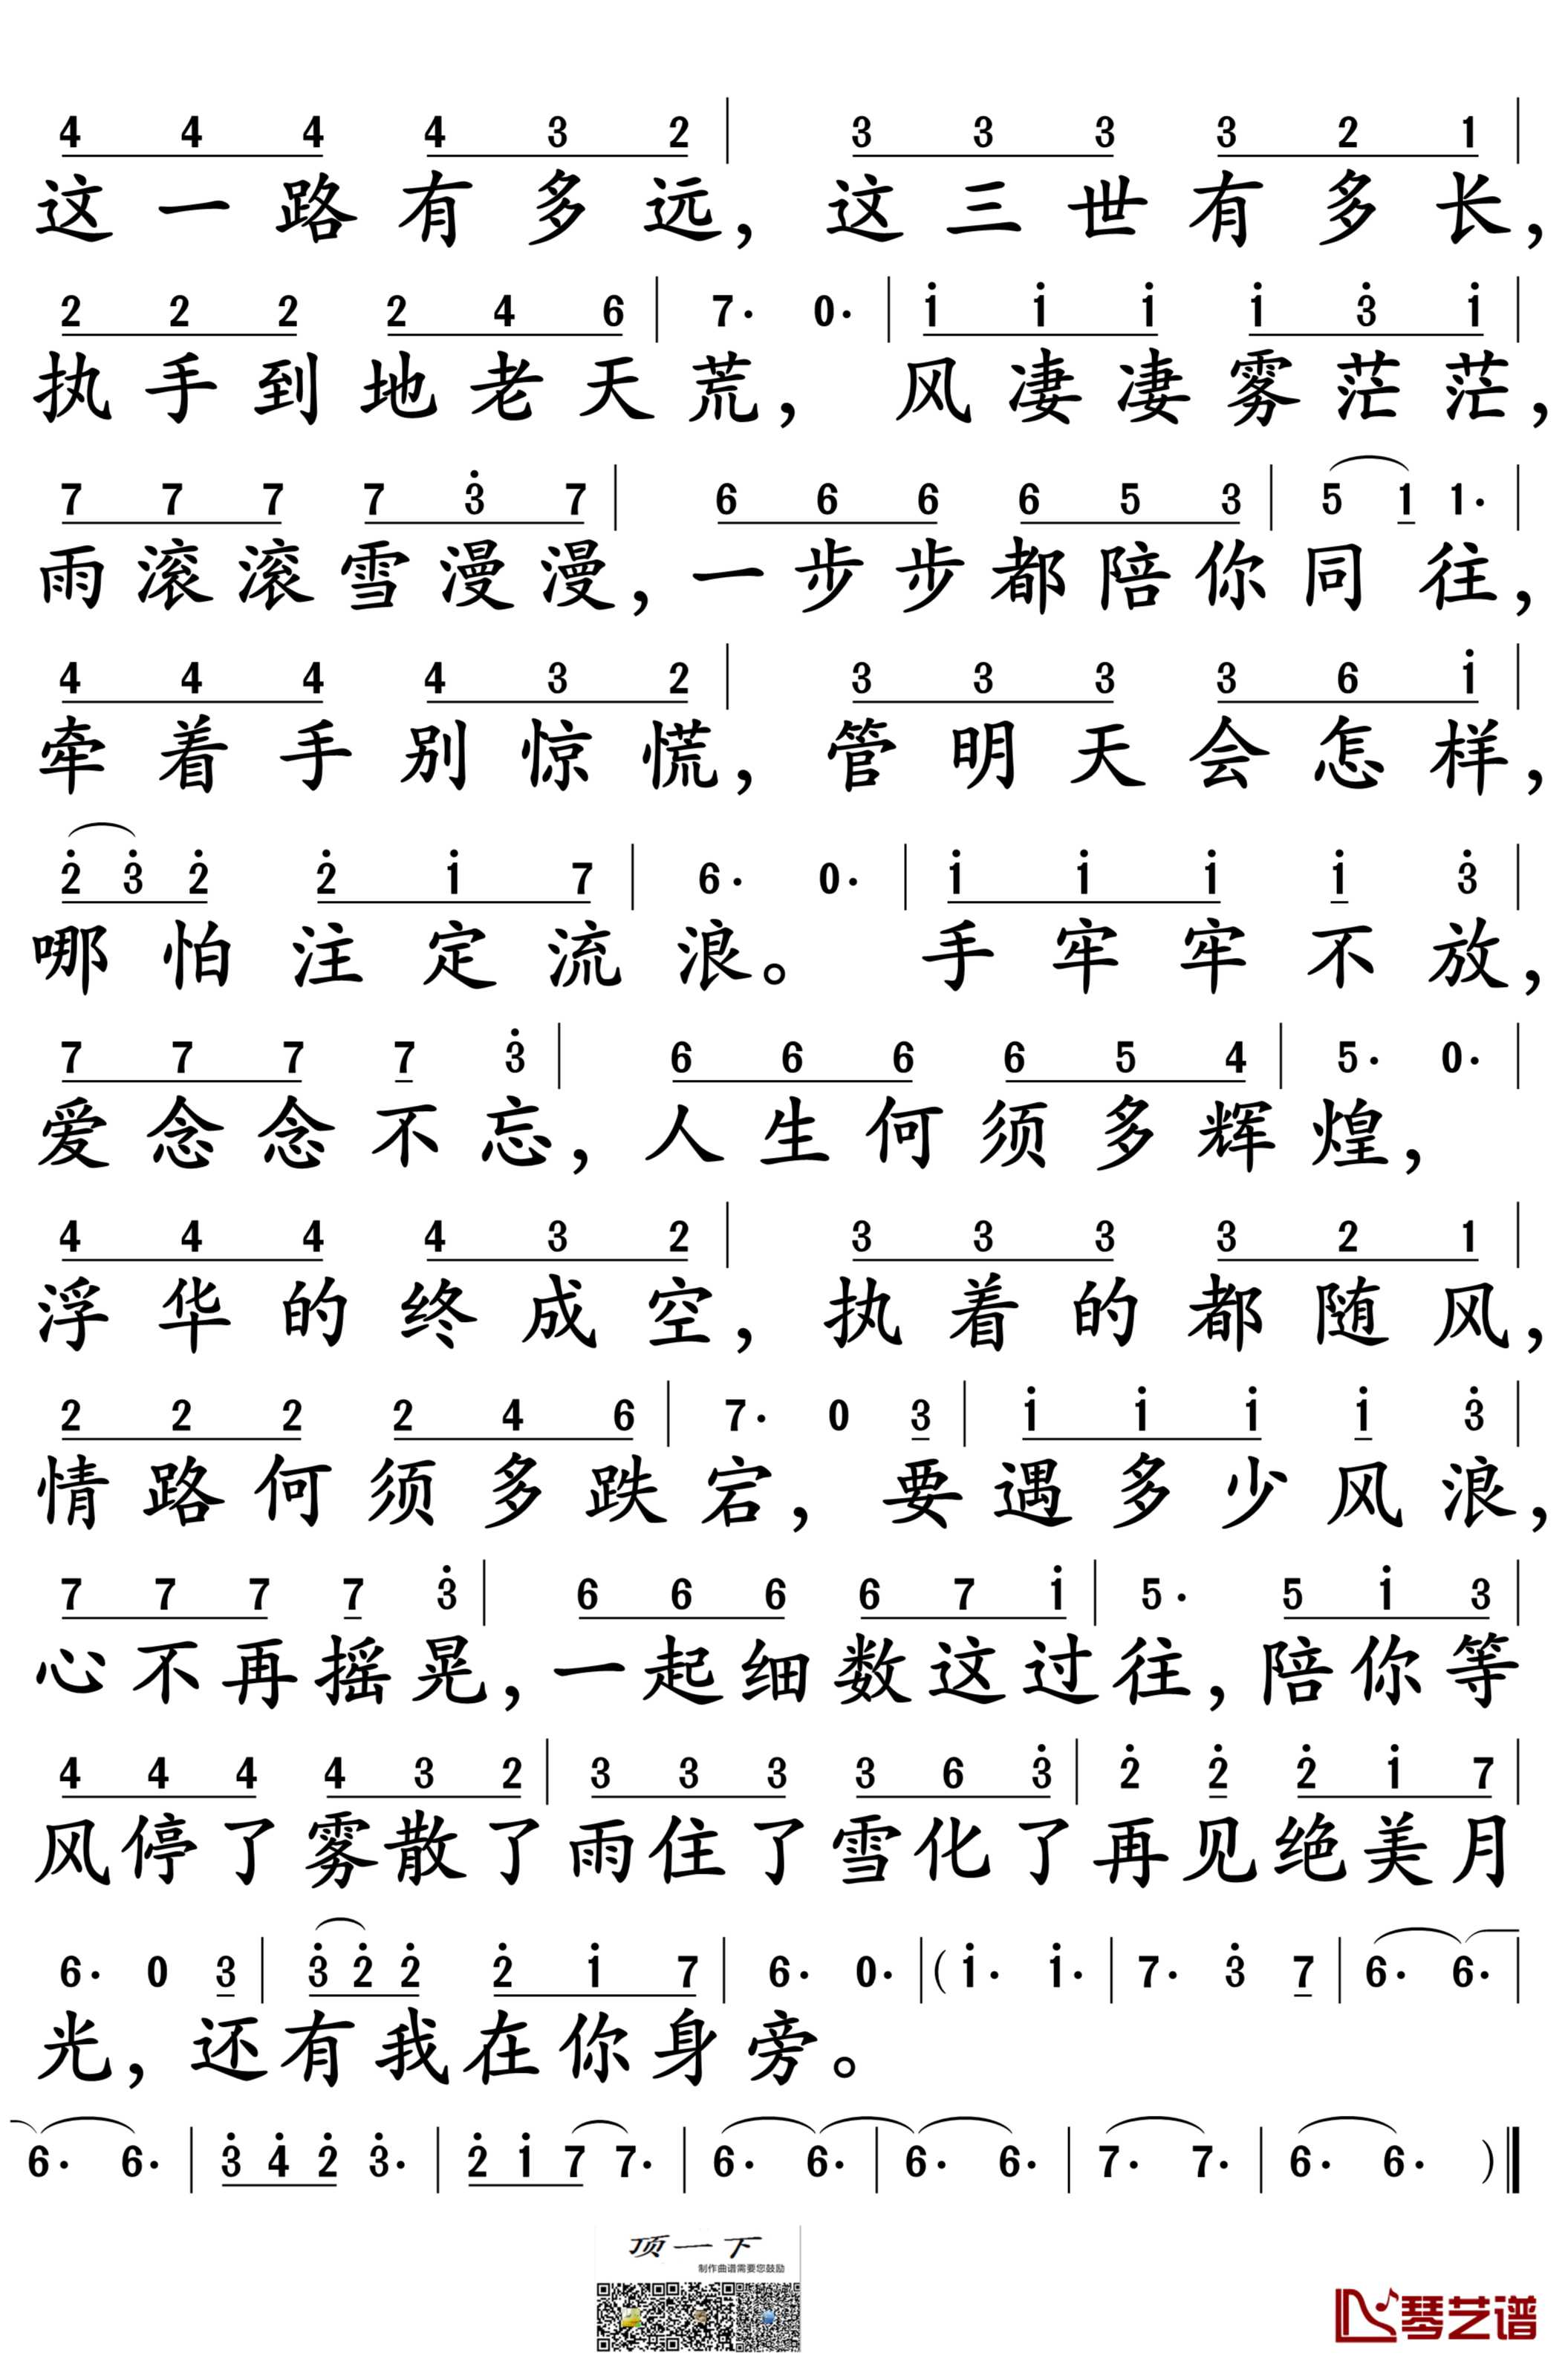 4 4 4 4 3 2 | 3 3 3 3 2 1 |
这一路有多远，这三世有多长，
2 2 2 2 4 6 | 7· 0· | i i i i 3̇ i |
执手到地老天荒，风凄凄雾茫茫，
7 7 7 7 3̇ 7 | 6 6 6 6 5 3 | 5 1 1· |
雨滚滚雪漫漫，一步步都陪你同往，
4 4 4 4 3 2 | 3 3 3 3 6 i |
牵着手别惊慌，管明天会怎样，
2̇ 3̇ 2̇ 2̇ i 7 | 6· 0· | i i i i 3̇ |
哪怕注定流浪。手牢牢不放，
7 7 7 7 3̇ | 6 6 6 6 5 4 | 5· 0· |
爱念念不忘，人生何须多辉煌，
4 4 4 4 3 2 | 3 3 3 3 2 1 |
浮华的终成空，执着的都随风，
2 2 2 2 4 6 | 7· 0 3 | i i i i 3̇ |
情路何须多跌宕，要遇多少风浪，
7 7 7 7 3̇ | 6 6 6 6 7 i | 5· 5 i 3 |
心不再摇晃，一起细数这过往，陪你等
4 4 4 4 3 2 | 3 3 3 3 6 3̇ | 2̇ 2̇ 2̇ i 7 |
风停了雾散了雨住了雪化了再见绝美月
6· 0 3 | 3̇ 2̇ 2̇ 2̇ i 7 | 6· 0· | (i· i· | 7· 3̇ 7 | 6· 6· |
光，还有我在你身旁。
6· 6· | 3̇ 4̇ 2̇ 3̇· | 2̇ i 7 7· | 6· 6· | 6· 6· | 7· 7· | 6· 6· )‖
顶一下
制作曲谱需要您鼓励
琴艺谱